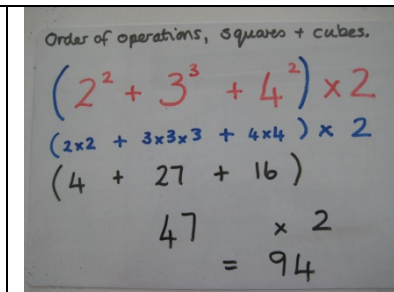 Order of operations, squares + cubes.
(2² + 3³ + 4²) × 2
(2×2 + 3×3×3 + 4×4) × 2
(4 + 27 + 16)
47 × 2
= 94